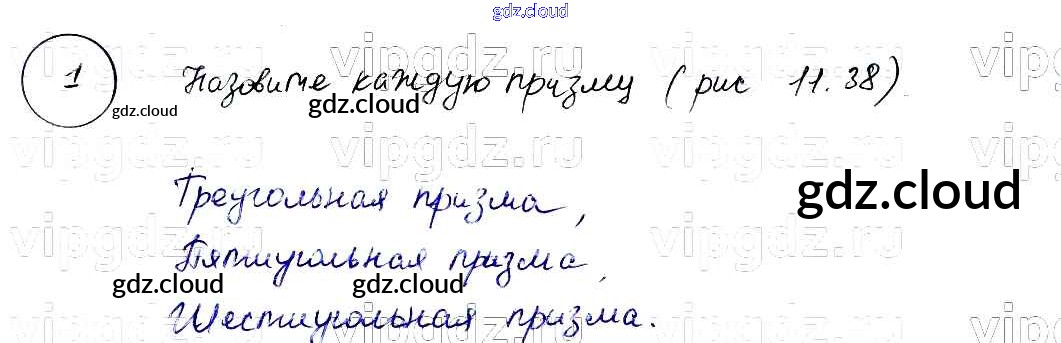 gdz.cloud
1 Назовите каждую призму (рис 11.38)
gdz.cloud gdz.cloud
vipgdz.ru vipgdz.ru vipgdz.ru
Треугольная призма,
gdz.cloud
Пятиугольная призма,
gdz.cloud gdz.cloud
Шестиугольная призма.